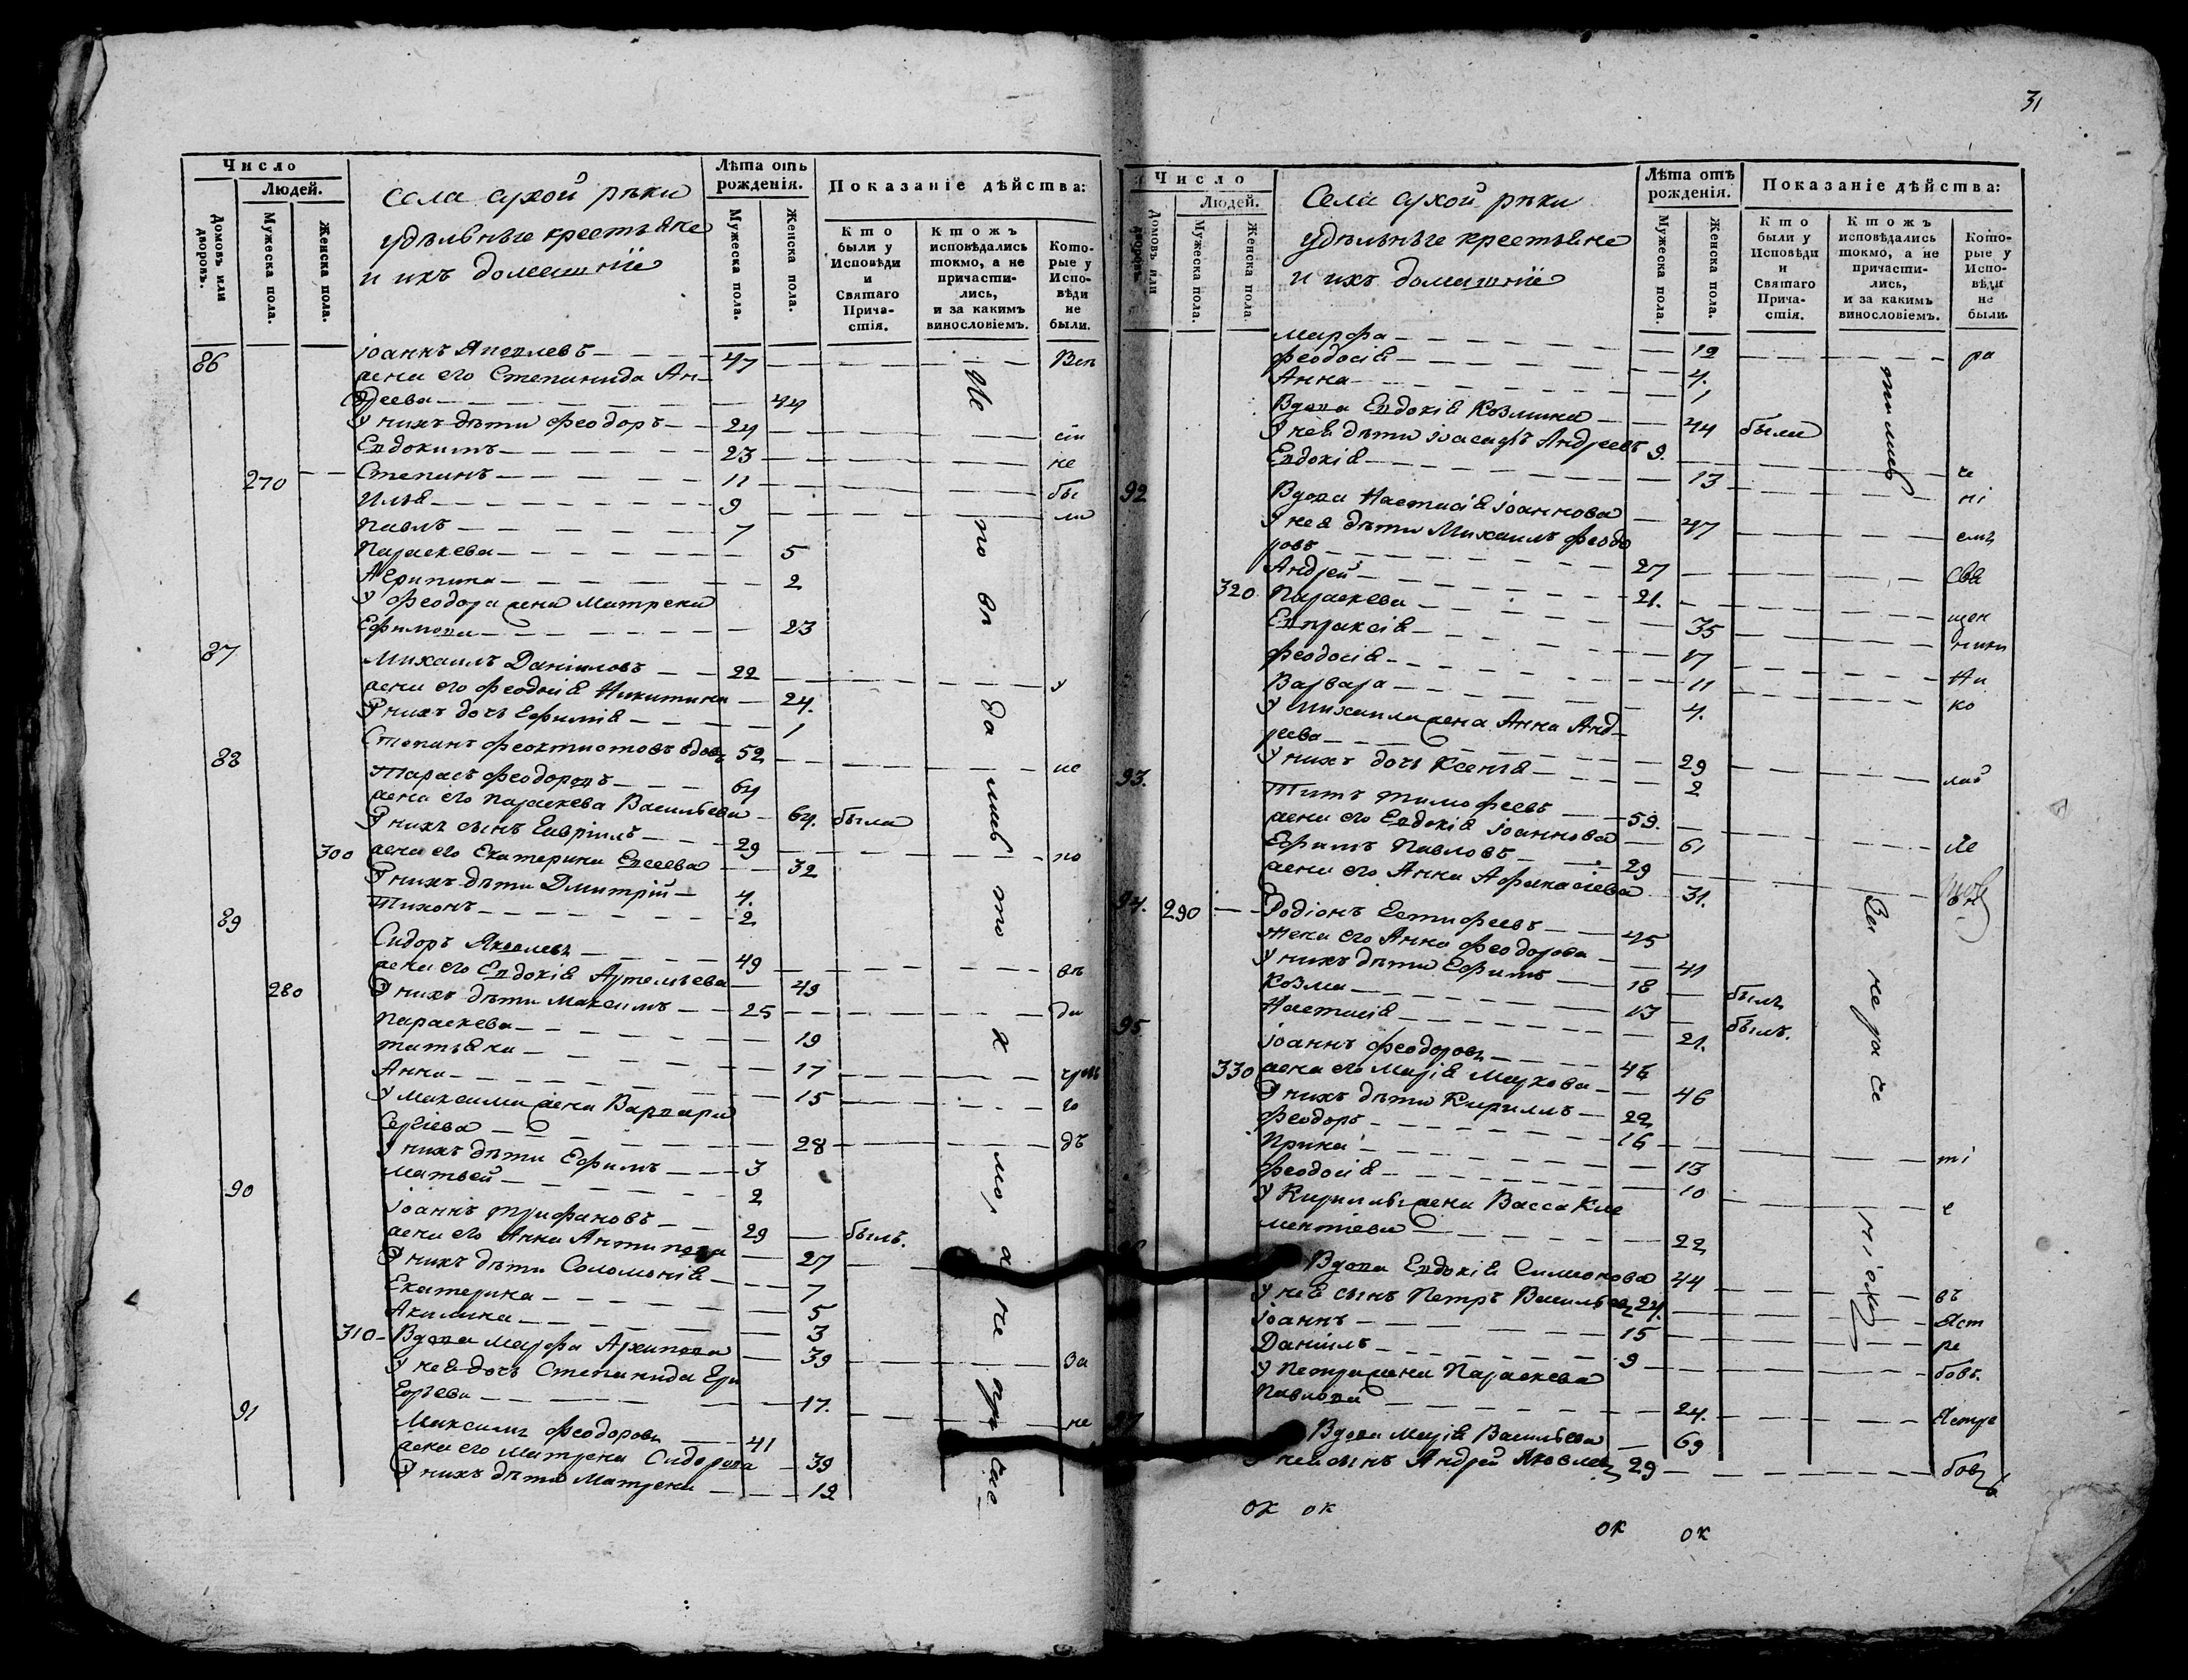 Число
Людей.
Домовъ или дворовъ.
Мужеска пола.
Женска пола.
Села сухой рѣки
удѣльныѣ крестьяне
и ихъ домашніе
Лѣта отъ рожденія.
Мужеска пола.
Женска пола.
Показаніе дѣйства:
Кто были у Исповѣди и Святаго Причастія.
Ктожъ исповѣдались токмо, а не причастились, и за какимъ винословіемъ.
Которые у Исповѣди не были.
86 Іоаннъ Яковлевъ 47
жена его Степанида Ан-
дреева 44
У нихъ дѣти Феодоръ 24
Евдокимъ 23 не
270 Степанъ 11 бы
Илья 9 ли
Павлъ 7
Параскева 5
Агрипина 2
У Феодора жена Матрена
Ефимова 23
87 Михаилъ Даніиловъ 22 у
жена его Феодосія Никитина 24.
У нихъ дочь Ефимія 1
Степанъ Феоктистовъ вдовъ 52 ис
88 Тарасъ Феодоровъ 64
жена его Параскева Васильева 64. была
У нихъ сынъ Гавріилъ 29 по
300 жена его Екатерина Евсеева 32
У нихъ дѣти Дмитрій 4.
Тихонъ 2
89 Сидоръ Яковлевъ 49 вѣ
жена его Евдокія Артемьева 49
280 У нихъ дѣти Максимъ 25 ди
Параскева 19
Татьяна 17
Анна 15
У Максима жена Варвара
Сергіева 28
У нихъ дѣти Ефимъ 3
Матвей 2
90 Іоаннъ Трифановъ 29 былъ.
жена его Анна Антипова 27
У нихъ дѣти Соломонія 7
Екатерина 5
Акилина 3
310 Вдова Марфа Архипова 39 за
У нея дочь Степанида Гри
горьева 17. не
91 Максимъ Феодоровъ 41
жена его Матрена Сидорова 39
У нихъ дѣти Матрена 12
31
Число
Людей.
Домовъ или дворовъ.
Мужеска пола.
Женска пола.
Села сухой рѣки
удѣльныѣ крестьяне
и ихъ домашніе
Лѣта отъ рожденія.
Мужеска пола.
Женска пола.
Показаніе дѣйства:
Кто были у Исповѣди и Святаго Причастія.
Ктожъ исповѣдались токмо, а не причастились, и за какимъ винословіемъ.
Которые у Исповѣди не были.
Марфа 12 ра
Феодосія 4.
Анна 1
Вдова Евдокія Козмина 44 были
У нея дѣти Іоасафъ Андреевъ 9.
Евдокія 13 ні
92 Вдова Настасія Іоаннова 47
У нея дѣти Михаилъ Феодо
ровъ 27 свя
Андрей 21. щен
320 Параскева 35 ники
Евпраксія 17 Ни
Феодосія 11 ко
Варвара 4.
У Михаила жена Анна Анд-
реева 29 лай
У нихъ дочь Ксенія 2
93. Титъ Тимофеевъ 59.
жена его Евдокія Іоаннова 61
Ефимъ Павловъ 29
жена его Анна Афанасіева 31.
94. 290 Родіонъ Естифеевъ 45
Жена его Анна Феодорова 41
У нихъ дѣти Ефимъ 18 былъ
Козма 13 былъ.
Настасія 21.
95 Іоаннъ Феодоровъ 46
330 жена его Марія Маркова 46
У нихъ дѣти Кириллъ 22
Феодоръ 16 ті
Ирина 13
Феодосія 10 е
У Кирилла жена Васса Кле
ментіева 22
Вдова Евдокія Симонова 44 въ
У нея сынъ Петръ Васильевъ 24. Яст
Іоаннъ 15 ре
Даніилъ 9 бовъ.
У Петра жена Параскева
Павлова 24. Ястре
Вдова Марія Васильева 69
У ней сынъ Андрей Яковлевъ 29 бовъ
ок ок
ок ок